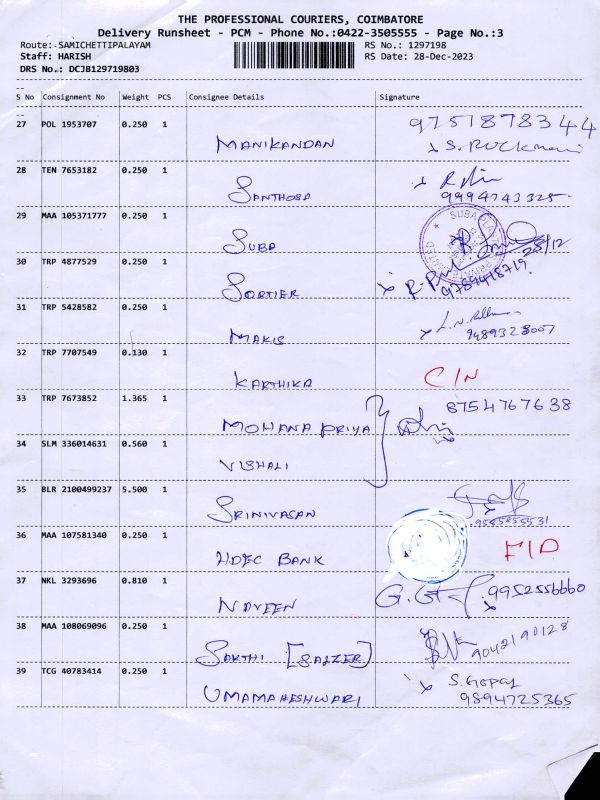 THE PROFESSIONAL COURIERS, COIMBATORE
Delivery Runsheet - PCM - Phone No.:0422-3505555 - Page No.:3
Route: SAMICHETTIPALAYAM RS No.: 1297198
Staff: HARISH RS Date: 28-Dec-2023
DRS No.: DCJB129719803
S No Consignment No Weight PCS Consignee Details Signature
27 POL 1953707 0.250 1 9751878344
MANIKANDAN x S. RUCKMANI
28 TEN 7653182 0.250 1
SANTHOSH 9994743325
29 MAA 105371777 0.250 1
SUBA 28/12
30 TRP 4877529 0.250 1
SORTIER 9789418719
31 TRP 5428582 0.250 1
MAKIS 9489328007
32 TRP 7707549 0.130 1
KARTHIKA C/N
33 TRP 7673852 1.365 1 8754767638
MOHANA PRIYA
34 SLM 336014631 0.560 1
VISHALI
35 BLR 2100499237 5.500 1
SRINIVASAN
36 MAA 107581340 0.250 1
HDFC BANK
37 NKL 3293696 0.810 1 9952556660
NAVEEN
38 MAA 108069096 0.250 1 9042190128
SAKTHI [SALZER]
39 TCG 40783414 0.250 1 S. GOPAL
UMAMAHESHWARI 9894725365